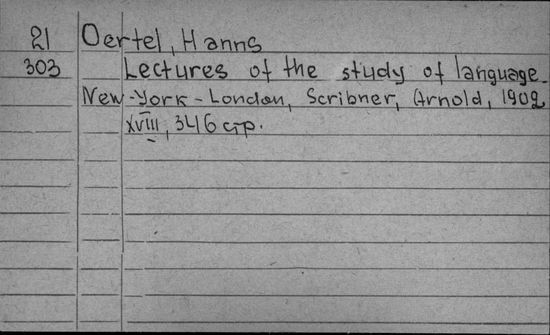 21 Oertel, Hanns
303 Lectures of the study of language.
New-York-London, Scribner, Arnold, 1902
XVIII, 346 стр.